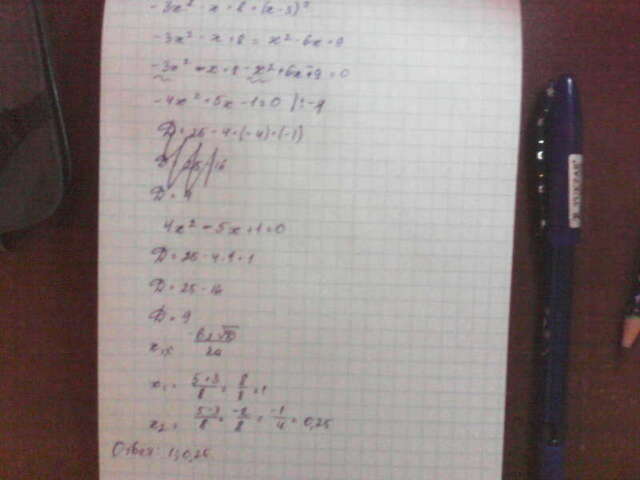 -3x² - x + 8 = (x-3)²
-3x² - x + 8 = x² - 6x + 9
-3x² - x + 8 - x² + 6x + 9 = 0
-4x² + 5x - 1 = 0 | : -1
D = 25 - 4 · (-4) · (-1)
D = 25 - 16
D = 9
4x² - 5x + 1 = 0
D = 25 - 4 · 4 · 1
D = 25 - 16
D = 9
-b ± √D / 2a
x₁ = 5+3/8 = 8/8 = 1
x₂ = 5-3/8 = -2/8 = -1/4 = 0,25
Ответ: 1; 0,25.